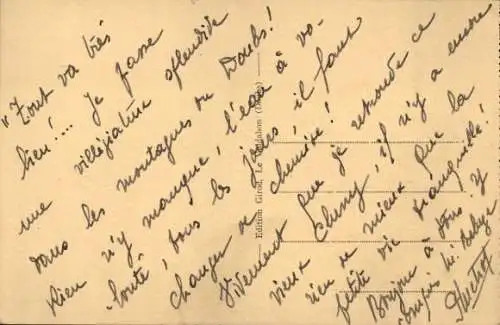 "Tout va très
bien!... Je passe
une villégiature splendide
dans les montagnes du Doubs!
Rien n'y manque, l'eau à vo-
lonté, tous les jours, il faut
changer de chemise!
Vivement que je retrouve ce
vieux Cluny, il n'y a encore
rien de mieux que la
petite vie tranquille!
Bonjour à tous, y
compris M.
Edition Girod, La (Doubs)